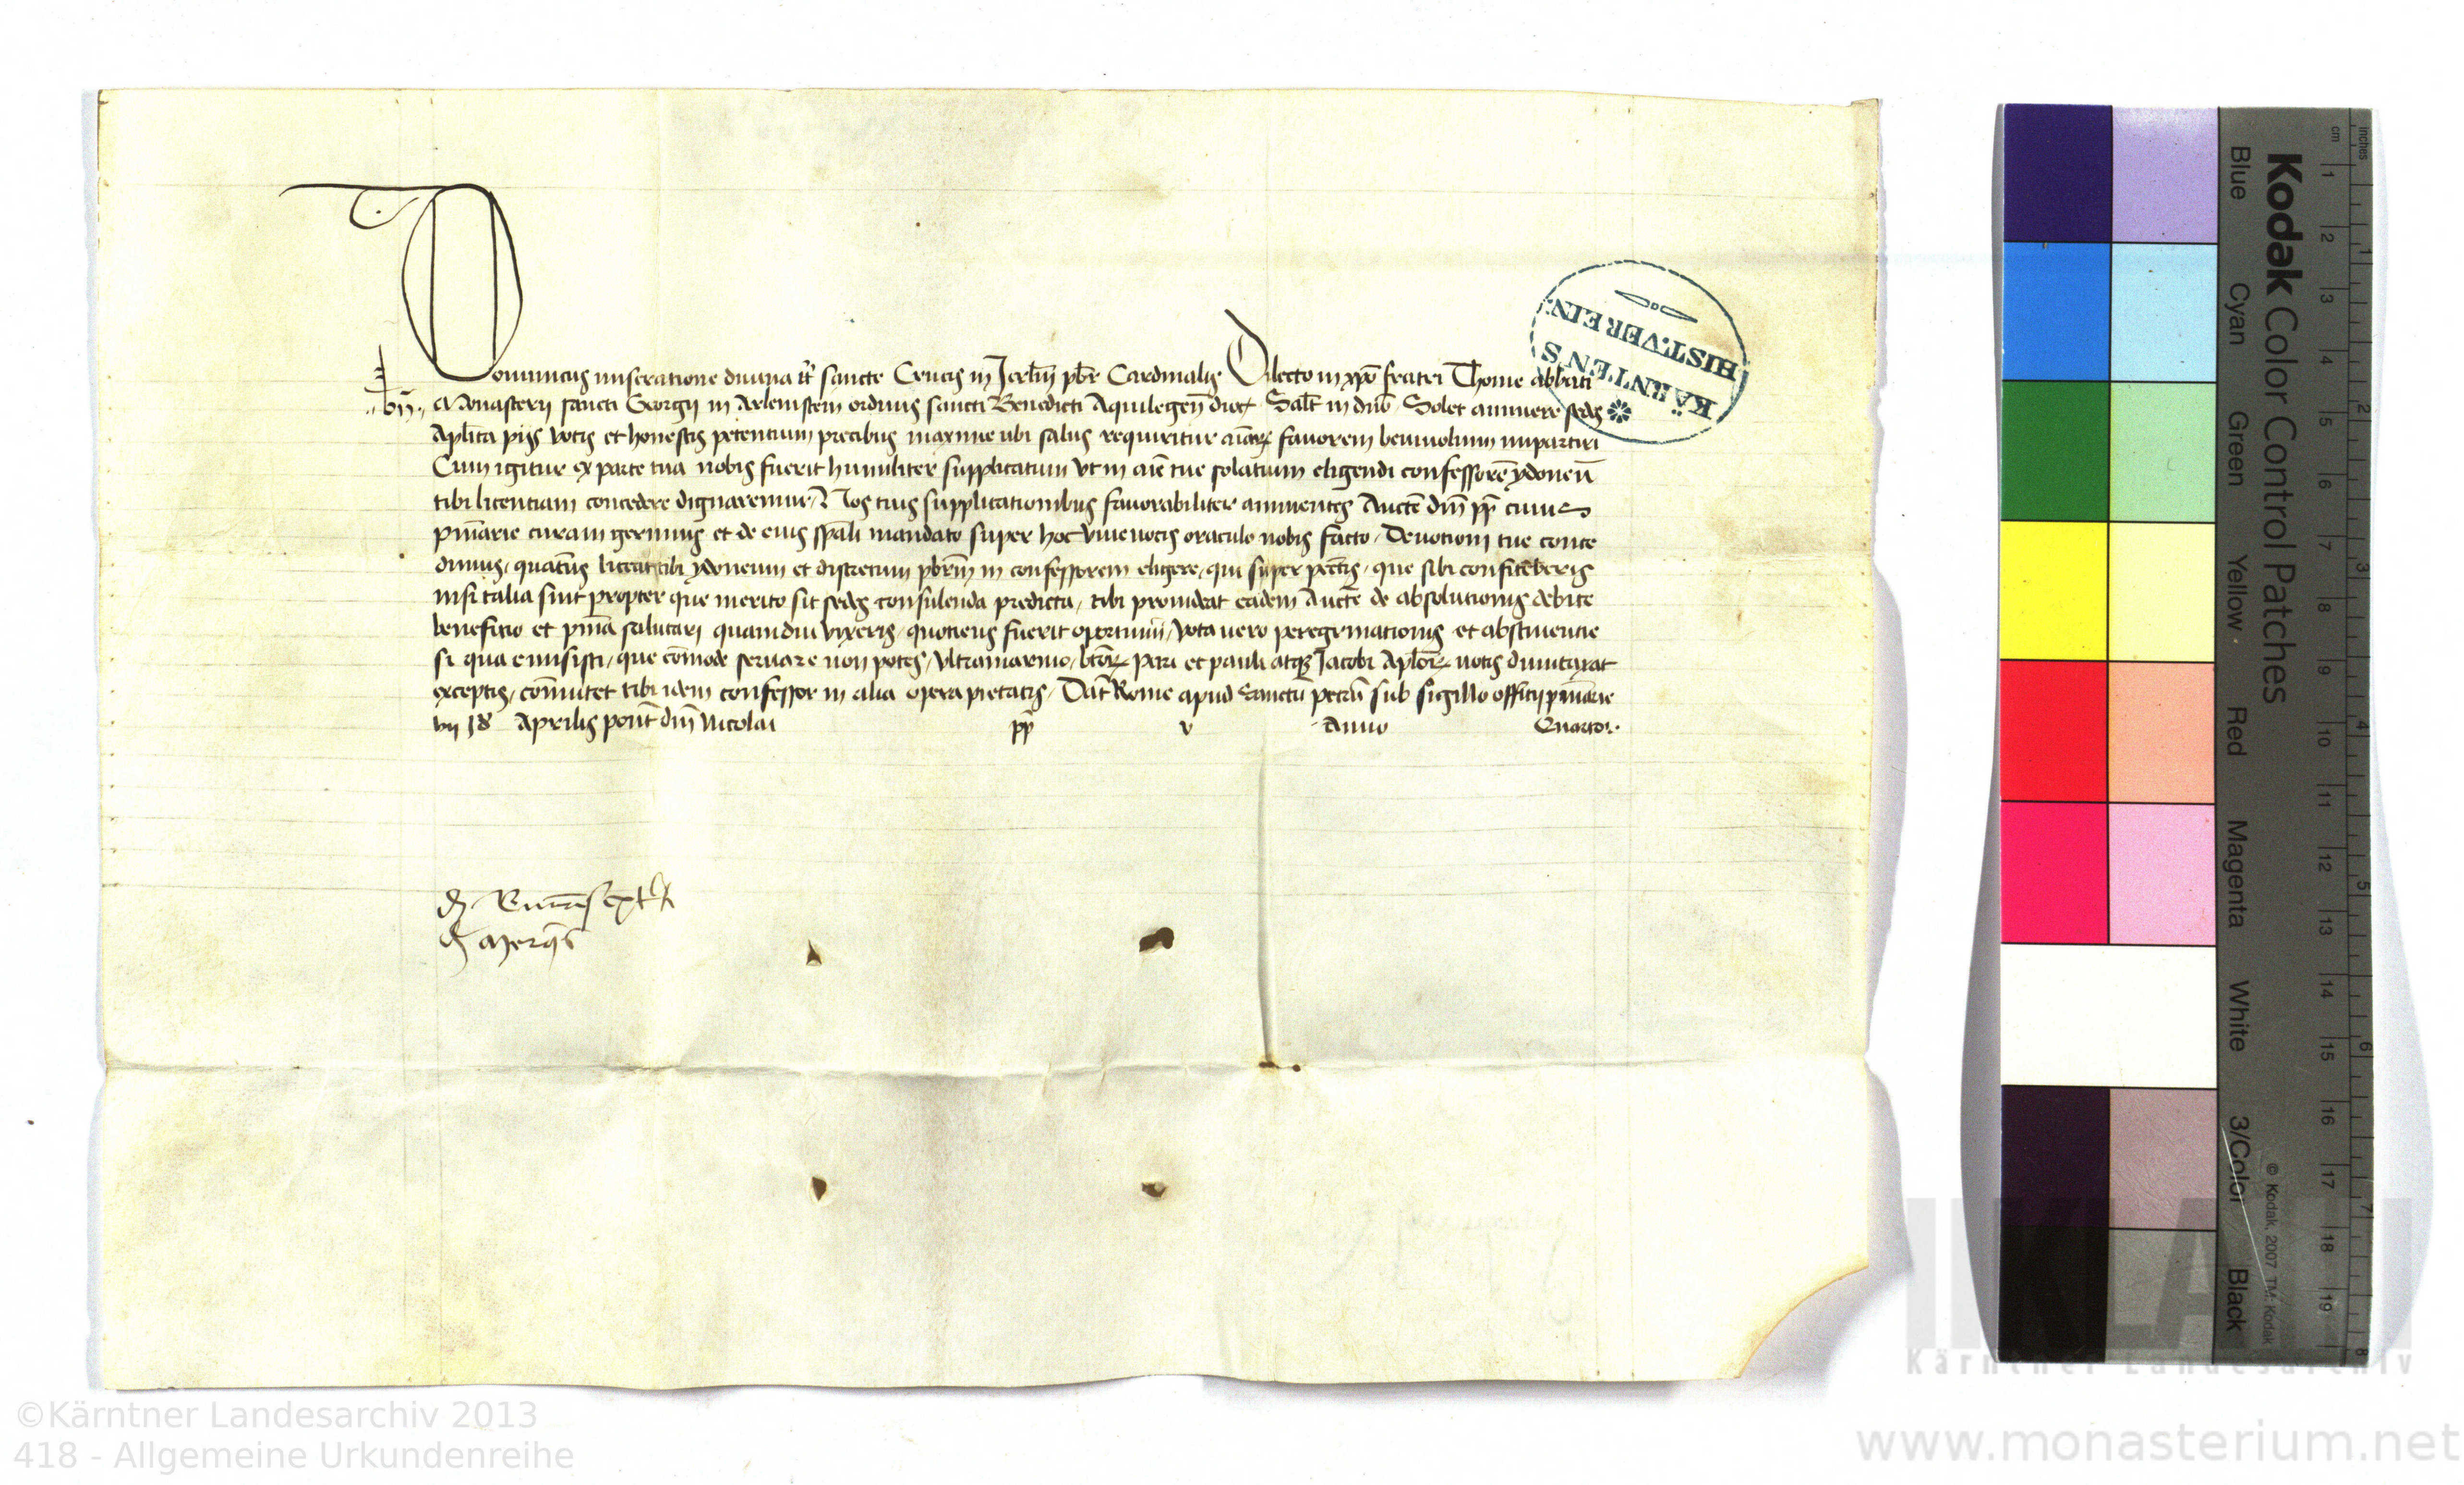 Dominicus miseratione divina tt̃ sancte Crucis in Jerlm̃ pbr̃ Cardinalis Dilecto in xpõ fratri Thome abbati
Monasterii sancti Georgii in ordinis sancti Benedicti Aquilegeñ dioc̃ Salt̃ in dño Solet annuere sedes
Aplica piis votis et honestis petentium precibus maxime ubi salus requiritur aiãrꝝ favorem benivolum impartiri
Cum igitur ex parte tua nobis fuerit humiliter supplicatum ut in aiẽ tue solatium eligendi confessorẽ ydoneũ
tibi licentiam concedere dignaremur, Nos tuis supplicationibus favorabiliter annuentes Auctẽ dñi pp̃ cuius
pñiarie curam gerimus et de eius sp̃ali mandato super hoc vive vocis oraculo nobis facto, Devotioni tue conce
dimus, quatũs liceat tibi ydoneum et discretum pbr̃m in confessorem eligere, qui super pctĩs, que sibi confiteberis
nisi talia sint propter que merito sit sedes consulenda predicta, tibi provideat eadem Auctẽ de absolutionis debite
beneficio et pñia salutari quamdiu vixeris, quotiens fuerit oportunũ, vota vero peregrinationis et abstinentie
si qua emisisti, que cõmode servare non potes, Ultramarino, btõrꝝ petri et pauli atqꝫ Jacobi Aplõrꝝ votis dumtaxat
exceptis, cõmutet tibi idem confessor in alia opera pietatis, Dat̃ Rome apud Sanctũ petrũ sub sigillo officii pñiarie
Id Aprilis pont̃ dñi Nicolai pp̃ v Anno Quarto.
KÄRNTENS
HIST.VEREIN.
Kodak Color Control Patches
Blue Cyan Green Yellow Red Magenta White 3/Color Black
© Kodak, 2007 TM: Kodak
inches
1 2 3 4 5 6 7 8
cm
1 2 3 4 5 6 7 8 9 10 11 12 13 14 15 16 17 18 19
KLA
Kärntner Landesarchiv
©Kärntner Landesarchiv 2013
418 - Allgemeine Urkundenreihe
www.monasterium.net